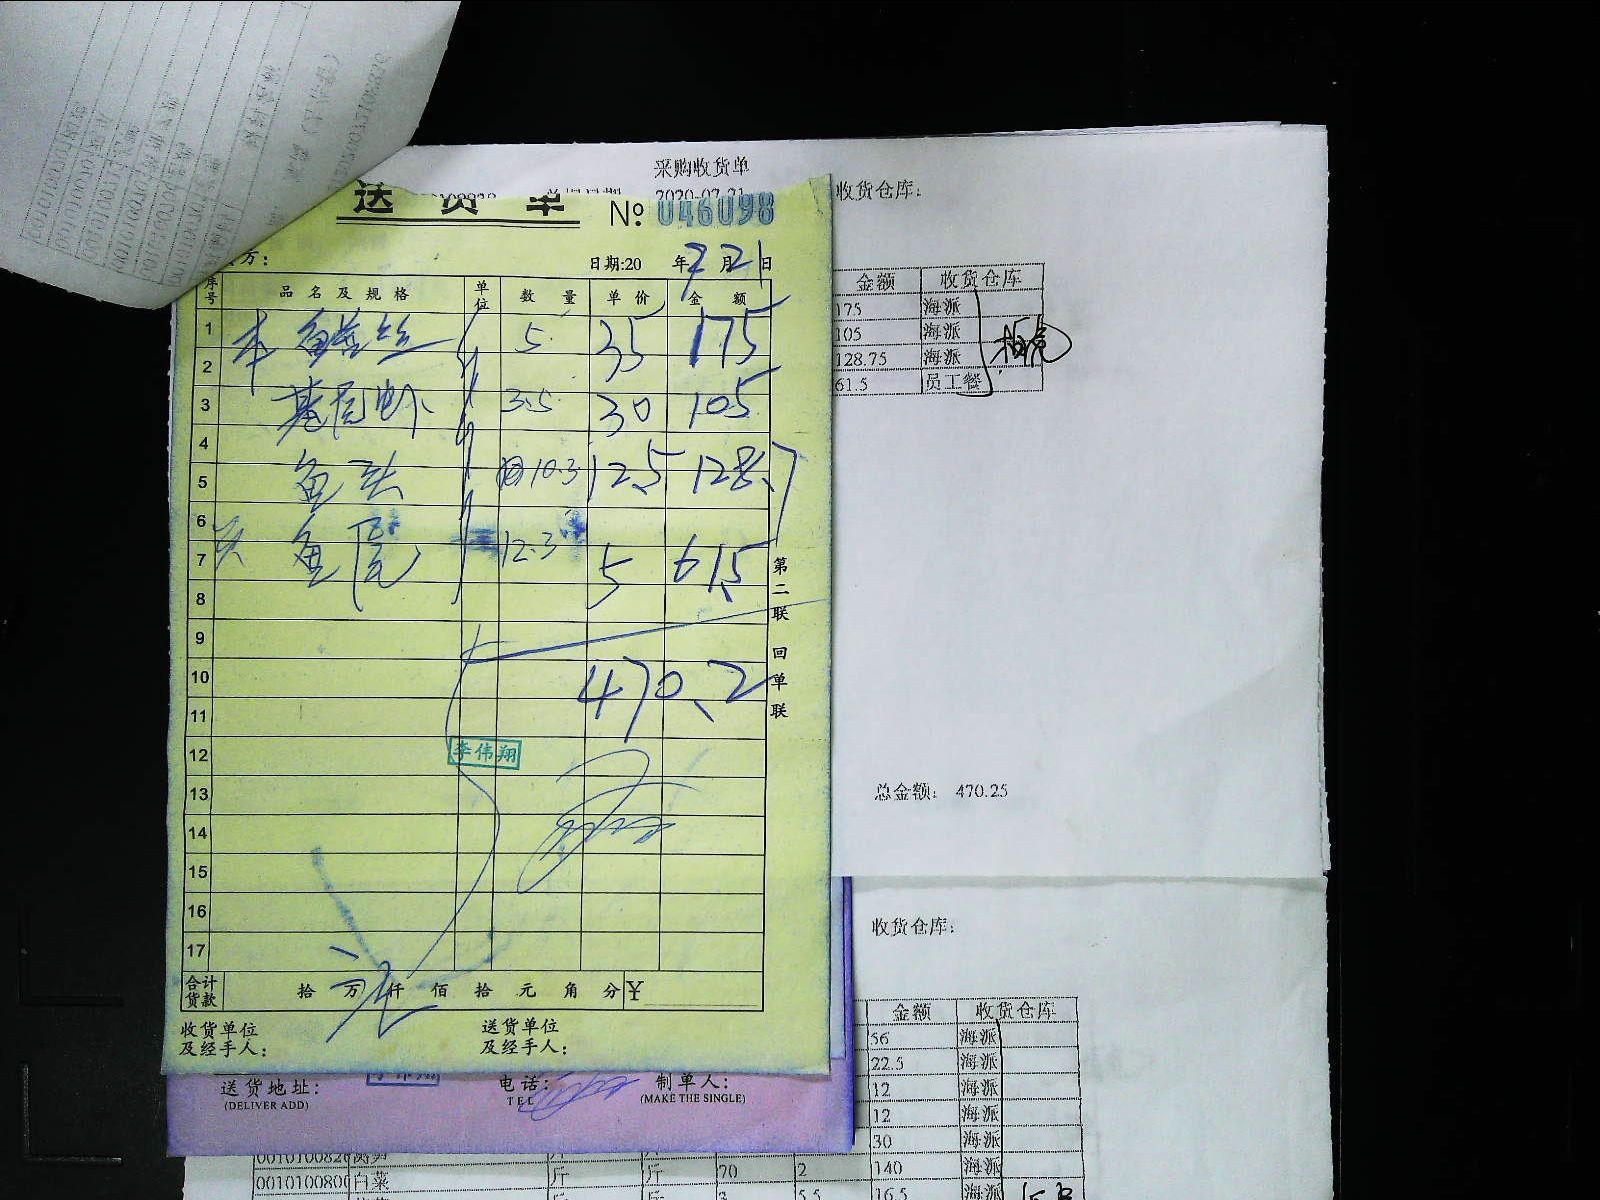 采购收货单
2020-07-21
收货仓库：
送货单 № 046098
方：
日期:20 年 7 月 21 日
序号 品名及规格 单位 数量 单价 金额
1 本 鱼 丝 5. 35 175
2
3 基围虾 3.5 30 105
4
5 鱼头 10.3 12.5 128.7
6
7 鱼尾 12.3 5 61.5
8
9
10 470.2
11
12 李伟翔
13
14
15
16
17
合计货款 拾 万 仟 佰 拾 元 角 分 ¥
收货单位及经手人：
送货单位及经手人：
第二联 回单联
送货地址：
(DELIVER ADD)
电话：
TEL
制单人：
(MAKE THE SINGLE)
金额 收货仓库
175 海派
105 海派
128.75 海派
61.5 员工餐
总金额： 470.25
收货仓库：
金额 收货仓库
56 海派
22.5 海派
12 海派
12 海派
30 海派
斤 斤 70 2 140 海派
白菜
3 5.5 16.5 海派